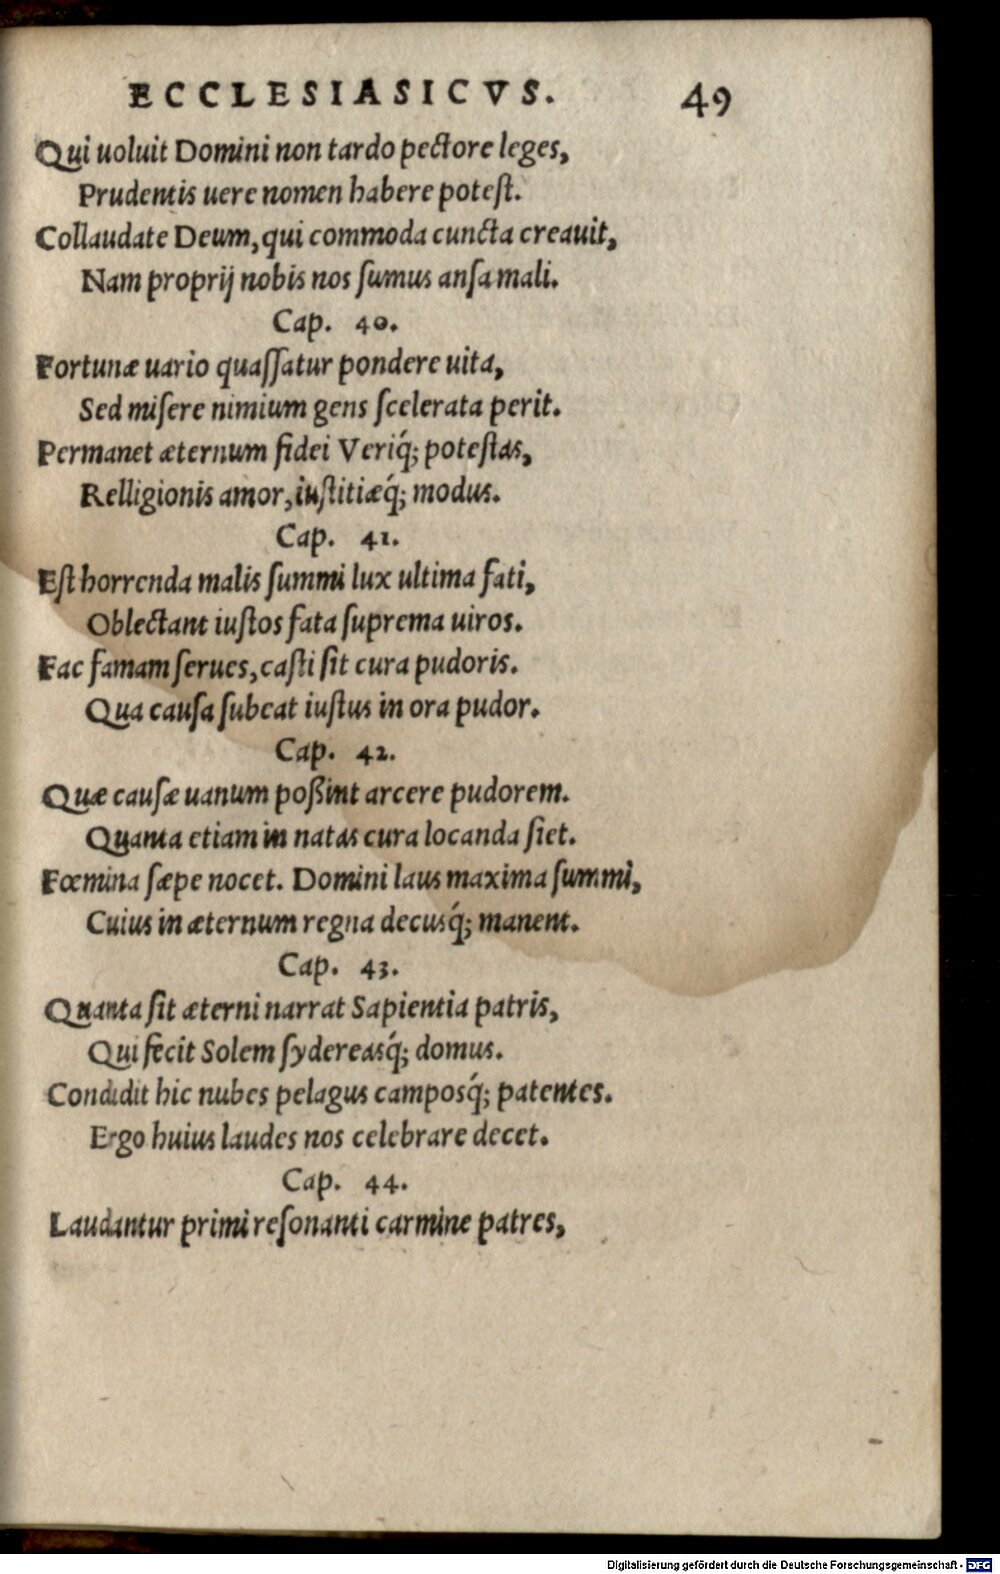 ECCLESIASICVS. 49
Qui uoluit Domini non tardo pectore leges,
Prudentis uere nomen habere potest.
Collaudate Deum, qui commoda cuncta creauit,
Nam proprij nobis nos sumus ansa mali.
Cap. 40.
Fortunæ uario quaſſatur pondere uita,
Sed miſere nimium gens ſcelerata perit.
Permanet æternum fidei Veriq́; poteſtas,
Relligionis amor, iuſtitiæq́; modus.
Cap. 41.
Eſt horrenda malis ſummi lux ultima fati,
Oblectant iuſtos fata ſuprema uiros.
Fac famam ſerues, caſti ſit cura pudoris.
Qua cauſa ſubeat iuſtus in ora pudor.
Cap. 42.
Quæ cauſæ uanum poßint arcere pudorem.
Quanta etiam in natas cura locanda ſiet.
Fœmina ſæpe nocet. Domini laus maxima ſummi,
Cuius in æternum regna decusq́; manent.
Cap. 43.
Quanta ſit æterni narrat Sapientia patris,
Qui fecit Solem ſydereasq́; domus.
Condidit hic nubes pelagus camposq́; patentes.
Ergo huius laudes nos celebrare decet.
Cap. 44.
Laudantur primi reſonanti carmine patres,
Digitalisierung gefördert durch die Deutsche Forschungsgemeinschaft - DFG